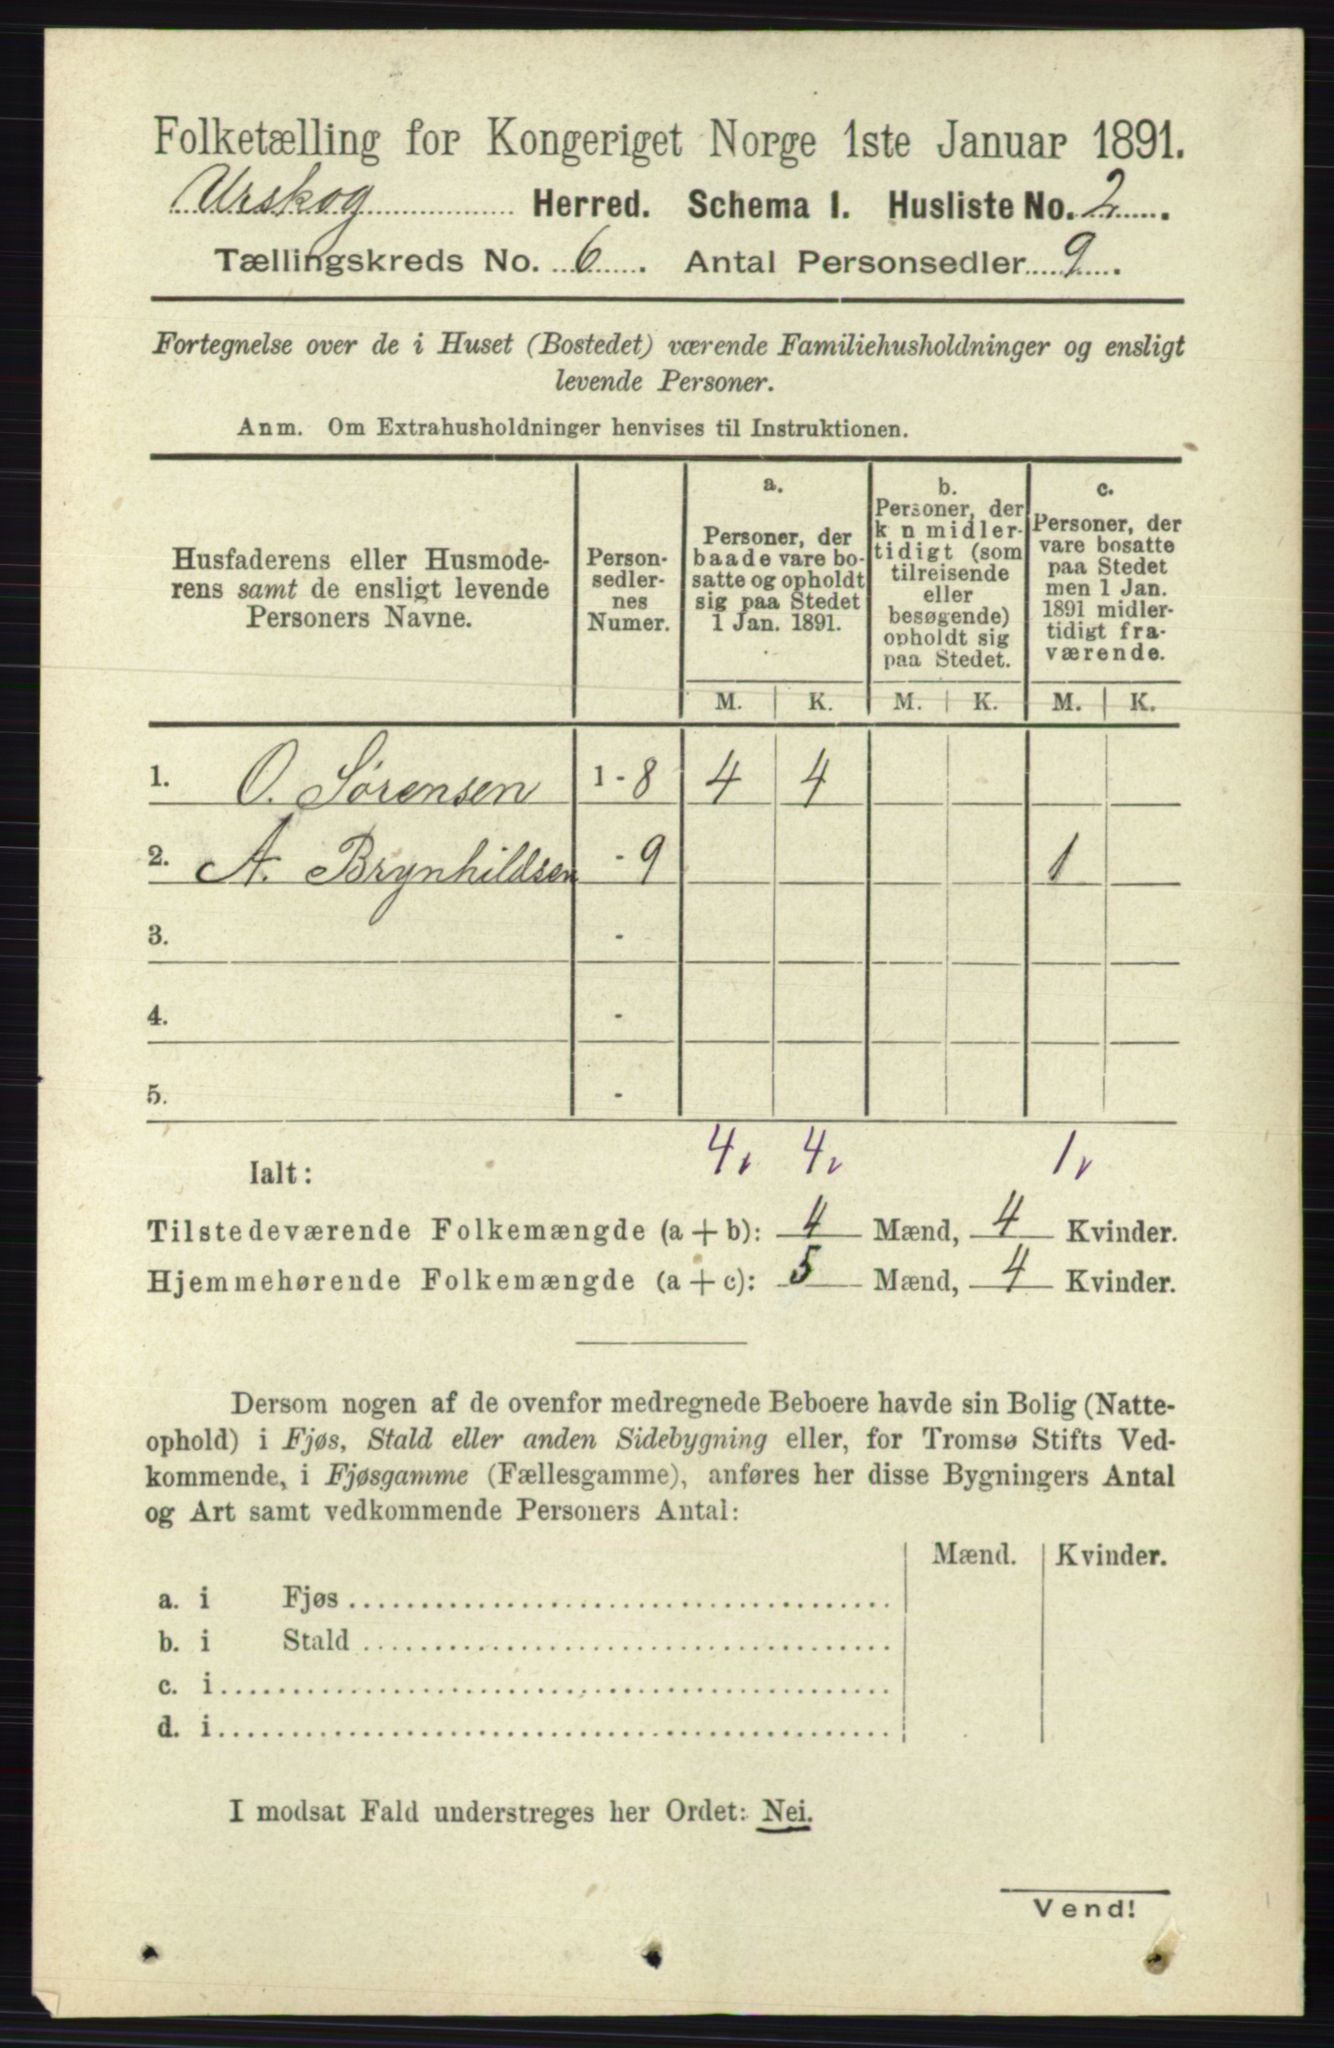 Folketælling for Kongeriget Norge 1ste Januar 1891.
Urskog Herred. Schema I. Husliste No. 2.
Tællingskreds No. 6. Antal Personsedler 9.
Fortegnelse over de i Huset (Bostedet) værende Familiehusholdninger og ensligt
levende Personer.
Anm. Om Extrahusholdninger henvises til Instruktionen.
Husfaderens eller Husmode-
rens samt de ensligt levende
Personers Navne.
Person-
sedler-
nes
Numer.
a.
Personer, der
baade vare bo-
satte og opholdt
sig paa Stedet
1 Jan. 1891.
b.
Personer, der
k n midler-
tidigt (som
tilreisende
eller
besøgende)
opholdt sig
paa Stedet.
c.
Personer, der
vare bosatte
paa Stedet
men 1 Jan.
1891 midler-
tidigt fra-
værende.
M. K. M. K. M. K.
1. O. Sørensen 1 - 8 4 4
2. A. Brynhildsen - 9 1
3. -
4. -
5. -
Ialt: 4 4 1
Tilstedeværende Folkemængde (a + b): 4 Mænd, 4 Kvinder.
Hjemmehørende Folkemængde (a + c): 5 Mænd, 4 Kvinder.
Dersom nogen af de ovenfor medregnede Beboere havde sin Bolig (Natte-
ophold) i Fjøs, Stald eller anden Sidebygning eller, for Tromsø Stifts Ved-
kommende, i Fjøsgamme (Fællesgamme), anføres her disse Bygningers Antal
og Art samt vedkommende Personers Antal:
Mænd. Kvinder.
a. i Fjøs
b. i Stald
c. i
d. i
I modsat Fald understreges her Ordet: Nei.
Vend!